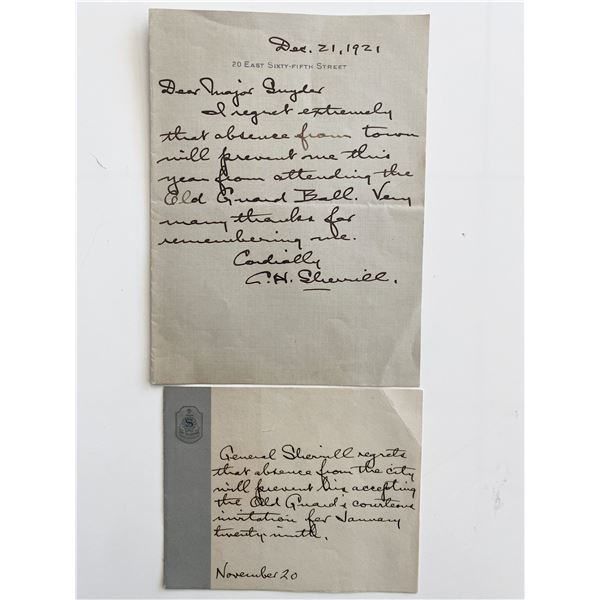 Dec. 21, 1921
20 EAST SIXTY-FIFTH STREET
Dear Major Snyder
I regret extremely
that absence from town
will prevent me this
year from attending the
Old Guard Ball. Very
many thanks for
remembering me.
Cordially
C.H. Sherrill.
S
General Sherrill regrets
that absence from the city
will prevent his accepting
the Old Guard's courteous
invitation for January
twenty ninth.
November 20